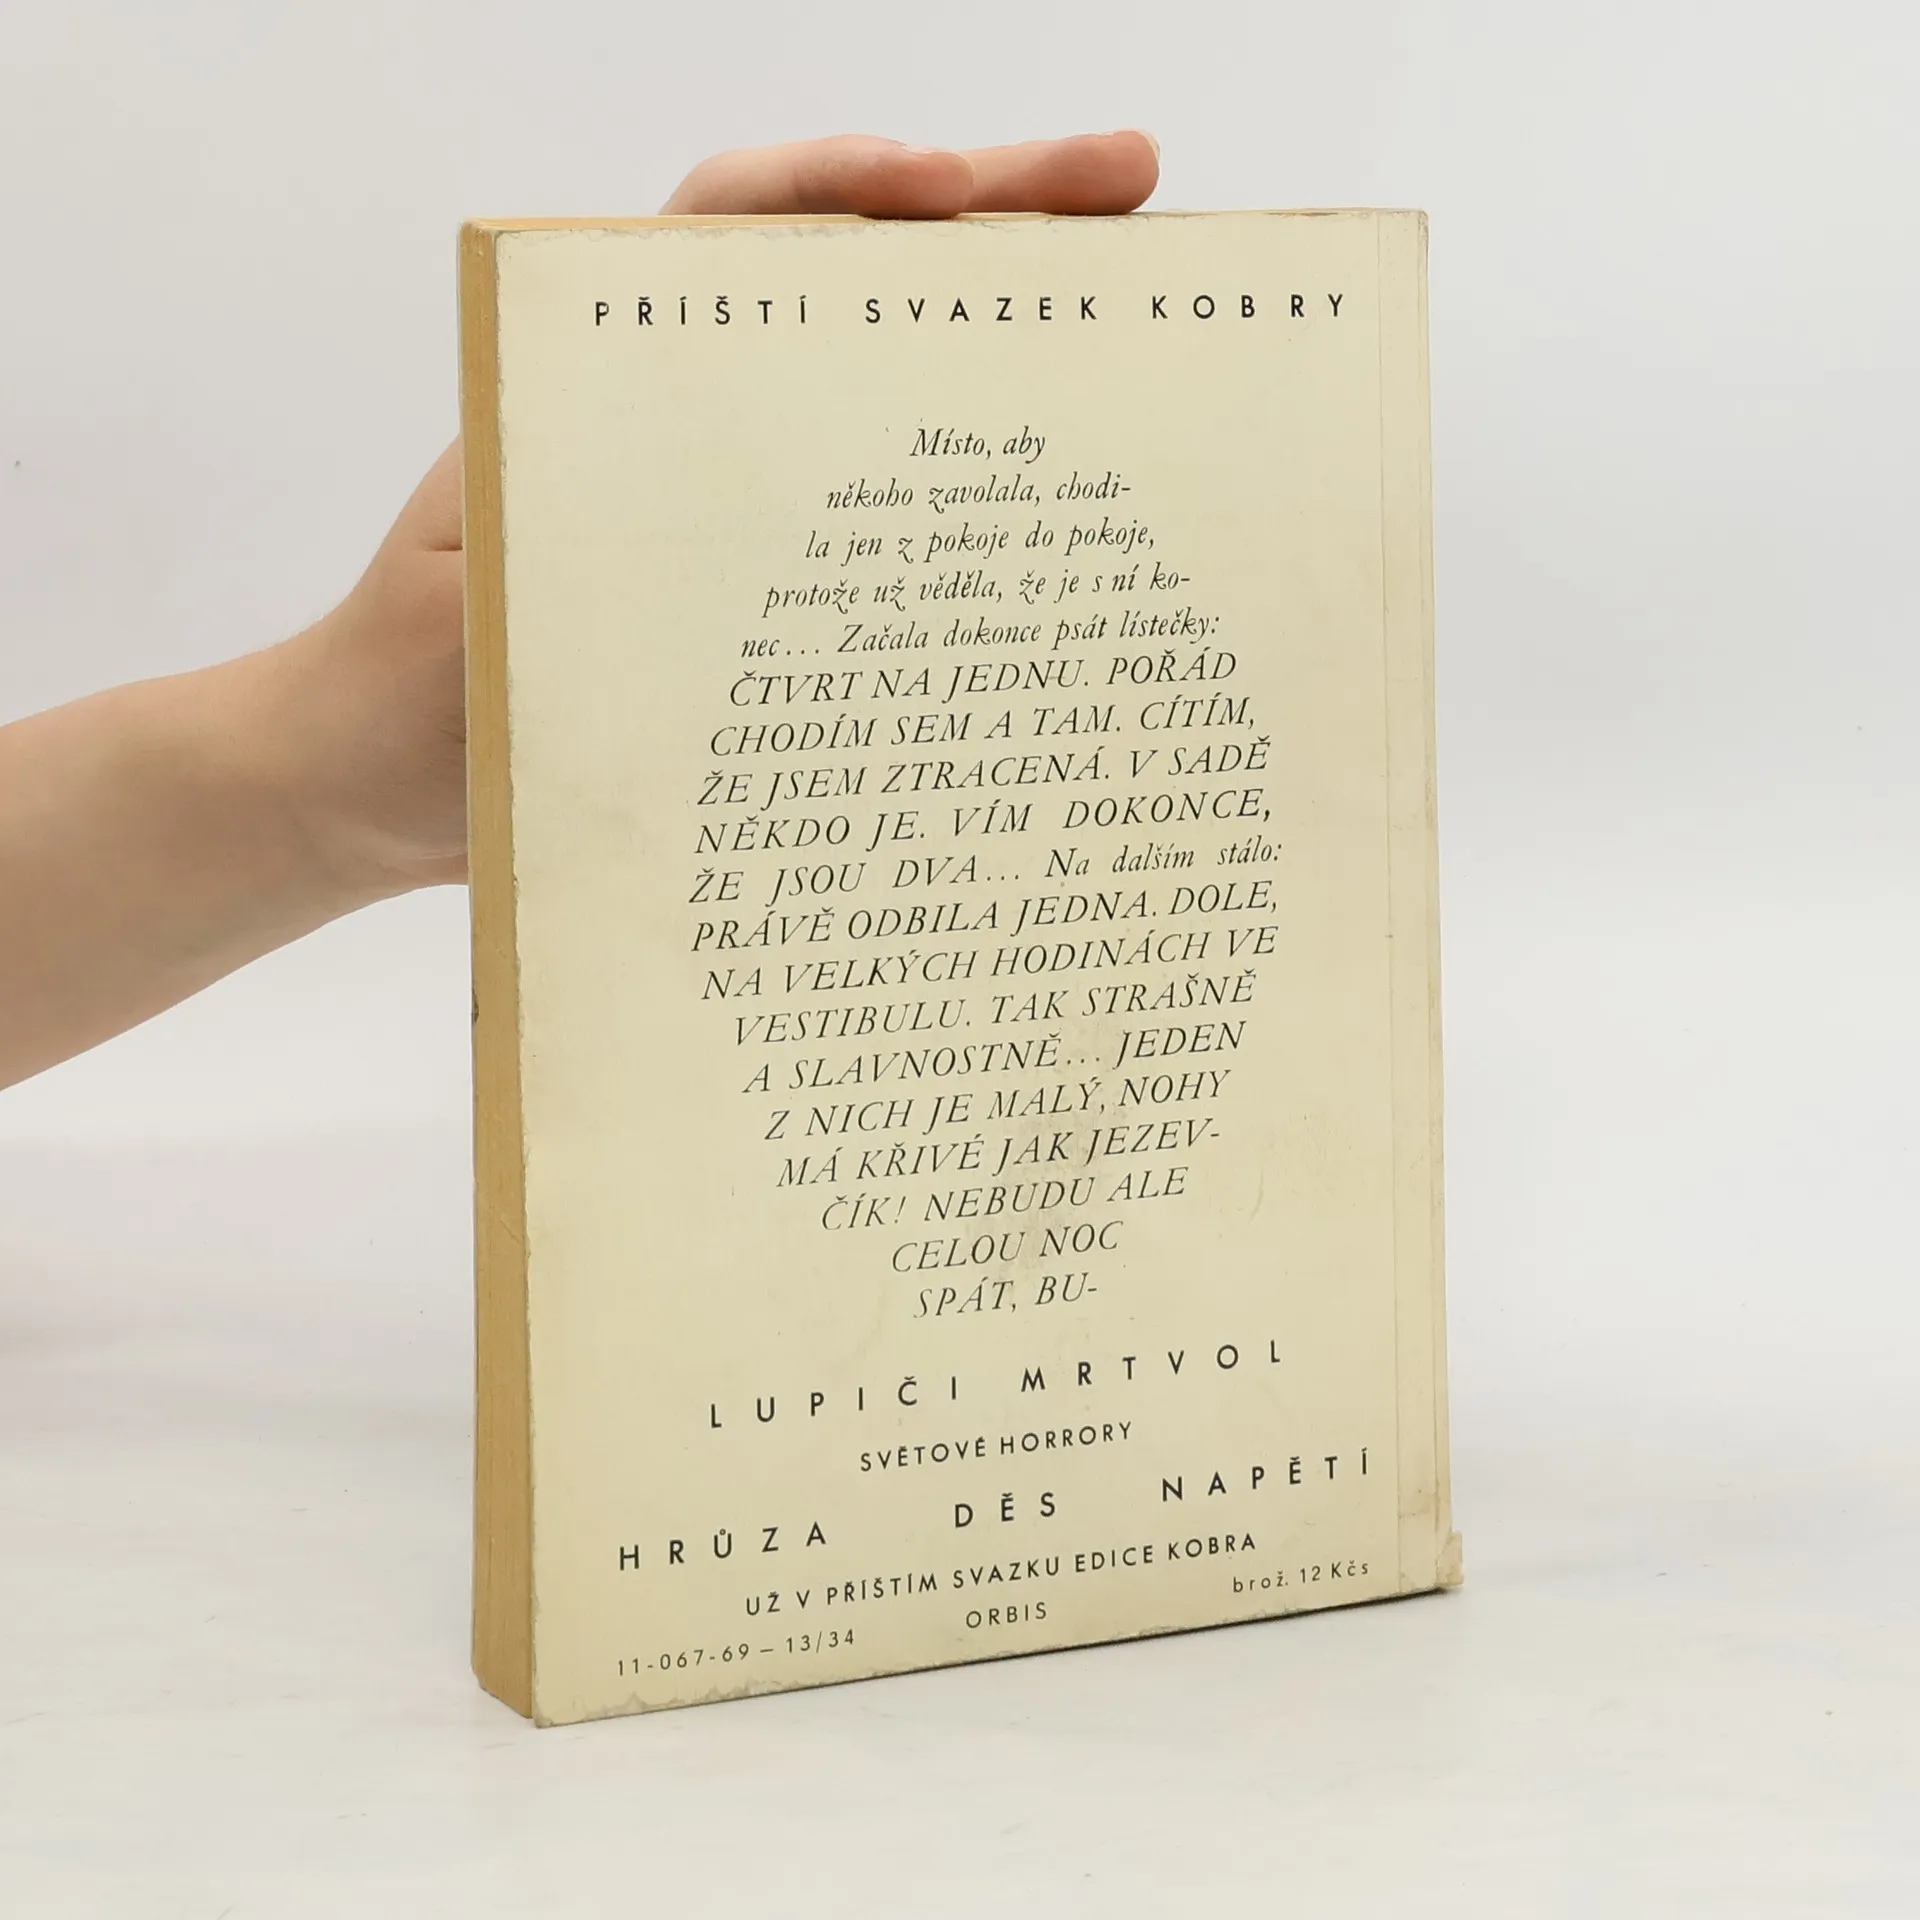 PŘÍŠTÍ SVAZEK KOBRY
Místo, aby
někoho zavolala, chodi-
la jen z pokoje do pokoje,
protože už věděla, že je s ní ko-
nec... Začala dokonce psát lístečky:
ČTVRT NA JEDNU. POŘÁD
CHODÍM SEM A TAM. CÍTÍM,
ŽE JSEM ZTRACENÁ. V SADĚ
NĚKDO JE. VÍM DOKONCE,
ŽE JSOU DVA... Na dalším stálo:
PRÁVĚ ODBILA JEDNA. DOLE,
NA VELKÝCH HODINÁCH VE
VESTIBULU. TAK STRAŠNĚ
A SLAVNOSTNĚ... JEDEN
Z NICH JE MALÝ, NOHY
MÁ KŘIVÉ JAK JEZEV-
ČÍK! NEBUDU ALE
CELOU NOC
SPÁT, BU-
LUPIČI MRTVOL
SVĚTOVÉ HORRORY
HRŮZA DĚS NAPĚTÍ
UŽ V PŘÍŠTÍM SVAZKU EDICE KOBRA
11-067-69 — 13/34 ORBIS brož. 12 Kčs